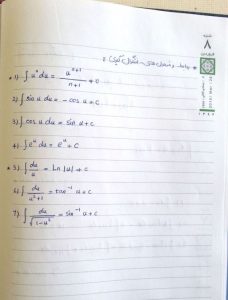 شنبه
۸
* روابط و فرمول های انتگرال گیری :
* 1) ∫ uⁿ du = uⁿ⁺¹/n+1 + c
2) ∫ sin u du = - cos u + c
3) ∫ cos u du = sin u + c
4) ∫ eᵘ du = eᵘ + c
* 5) ∫ du/u = Ln |u| + c
6) ∫ du/u²+1 = tan⁻¹ u + c
7) ∫ du/√1-u² = sin⁻¹ u + c